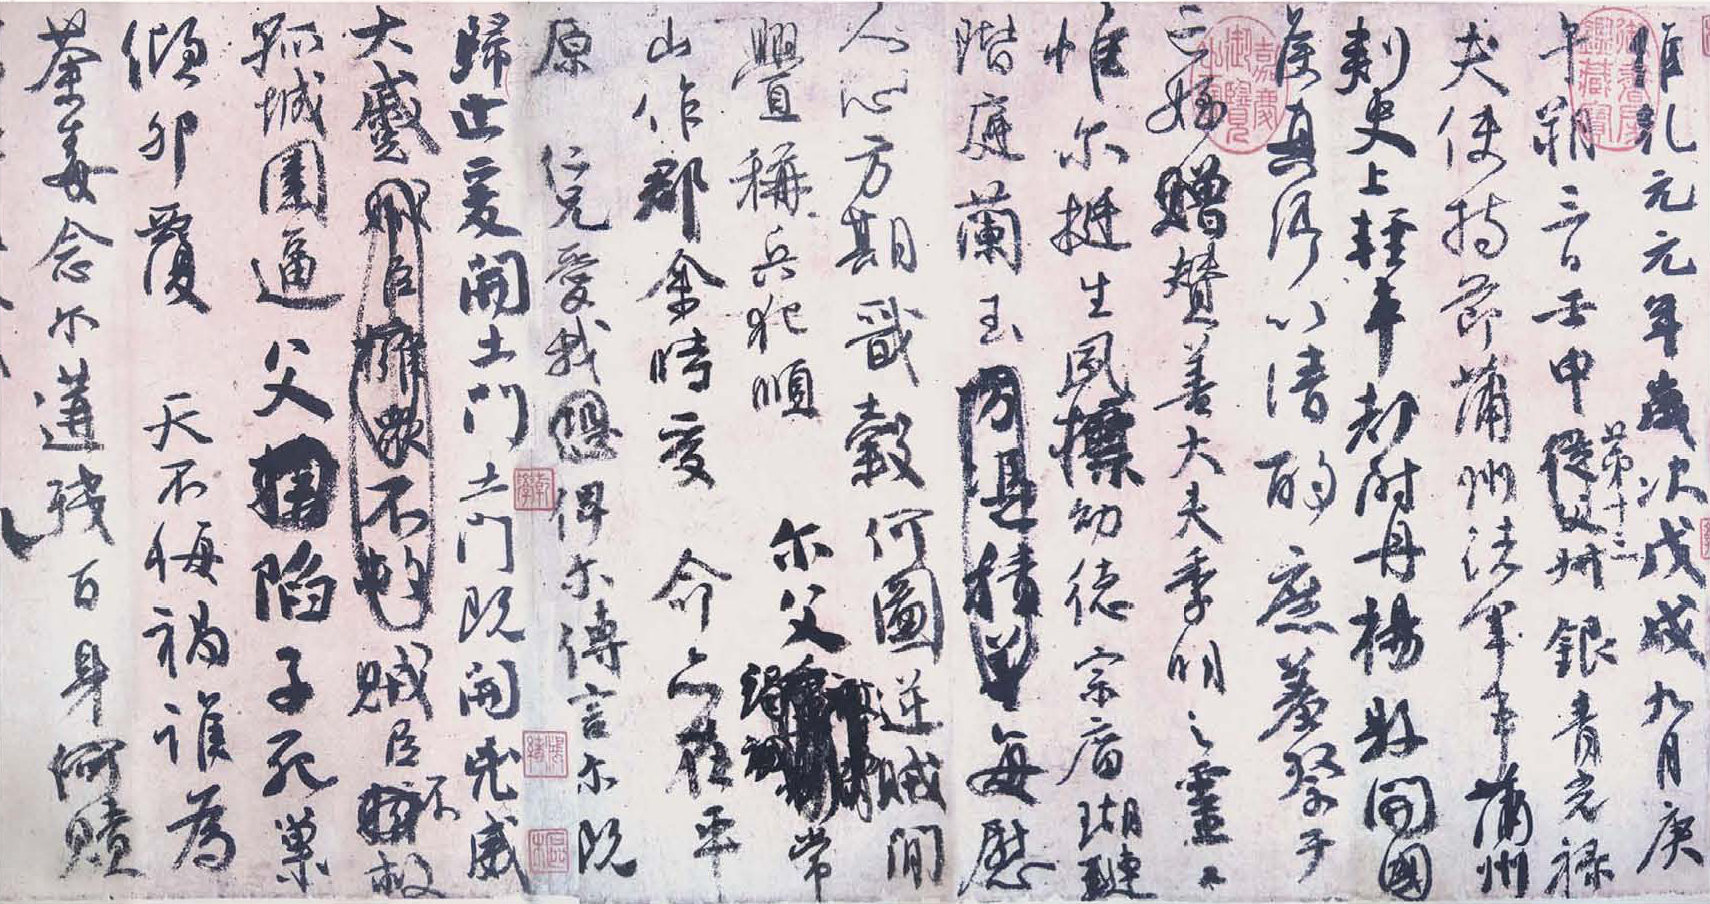 維乾元元年歲次戊戌九月庚
午朔三日壬申第十三從父叔銀青光禄
夫使持節蒲州諸軍事蒲州
刺史上輕車都尉丹楊縣開國
侯真卿以清酌庶羞祭于
亡姪贈贊善大夫季明之靈曰
惟尔挺生夙標幼德宗廟瑚璉
階庭蘭玉方憑積善每慰
人心方期戩穀何圖逆賊閒
舋稱兵犯順 尔父竭誠常
山作郡余時受 命亦在平
原 仁兄愛我恐俾尔傳言尔既
歸止爰開土門土門既開凶威
大蹙賊臣擁衆不救賊臣不救
孤城圍逼父擒陷子死巢
傾卵覆 天不悔禍誰為
荼毒念尔遘殘百身何贖
嘉慶御覽之寶